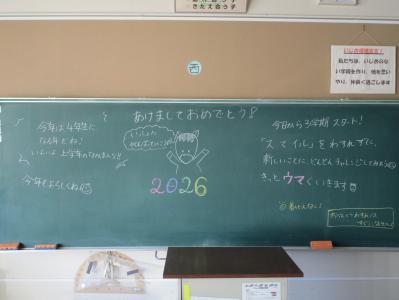 きたえ合う子
西
いじめ撲滅宣言!
私たちは、いじめのな
い学級を作り、他を思い
やり、仲良く過ごします
あけましておめでとう!
今年は4年生に
なる年だね!
いよいよ上学年のなかまいり!!
今年もよろしくね
いっしょに
がんばろうね
2026
今日から3学期スタート!
「スマイル」をわすれずに、
新しいことに、どんどんチャレンジしてみよう
きっとウマくいきます